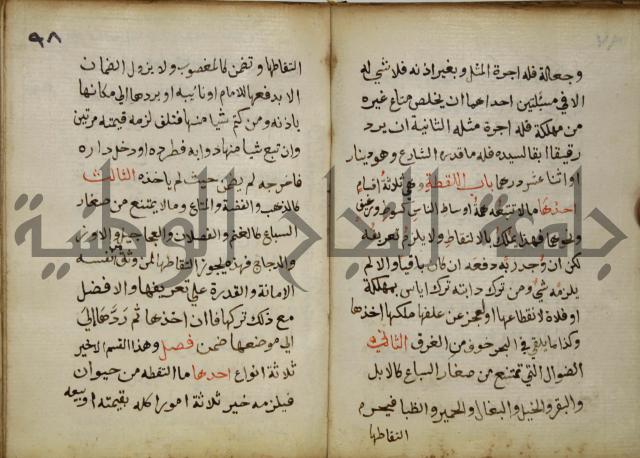 وجعالة فله اجرة المثل وبغير اذنه فلا شي له
الا في مسئلتين احداهما ان يخلص متاع غيره
من مهلكة فله اجرة مثله الثانية ان يرد
رقيقا ابقا لسيده فله ما قدره الشارع وهو دينار
او اثنا عشر درهما باب اللقطة وهي ثلاثة اقسام
احدها مالا تتبعه همة اوساط الناس كسوط ورغيف
ونحوهما فهذا يملك بالالتقاط ولا يلزم تعريفه
لكن ان وجد ربه دفعه ان كان باقيا والا لم
يلزمه شي ومن ترك دابته ترك اياس بمهلكة
او فلاة لانقطاعها او لعجز عن علفها ملكها اخذها
وكذا ما يلقى في البحر خوف من الغرق الثاني
الضوال التي تمتنع من صغار السباع كالابل
والبقر والخيل والبغال والحمير والظبا فيحرم
التقاطها
٩٨
التقاطها وتضمن كالمغصوب ولا يزول الضمان
الا بدفعها للامام او نايبه او يردها الى مكانها
باذنه ومن كتم شيا منها فتلف لزمه قيمته مرتين
وان تبع شيا منها دوابه فطرده او دخل داره
فاخرجه لم يضمن حيث لم ياخذه الثالث
كالذهب والفضة والمتاع وما لا يمتنع من صغار
السباع كالغنم والفصلان والعجاجيل والاوز
والدجاج فهذه يجوز التقاطها لمن وثق من نفسه
الامانة والقدرة على تعريفها والافضل
مع ذلك تركها فان اخذها ثم ردها الى
الى موضعها ضمن فصل وهذا القسم الاخير
ثلاثة انواع احدها ما التقطه من حيوان
فيلزمه خير ثلاثة امور اكله بقيمته او بيعه
جامعة النجاح الوطنية